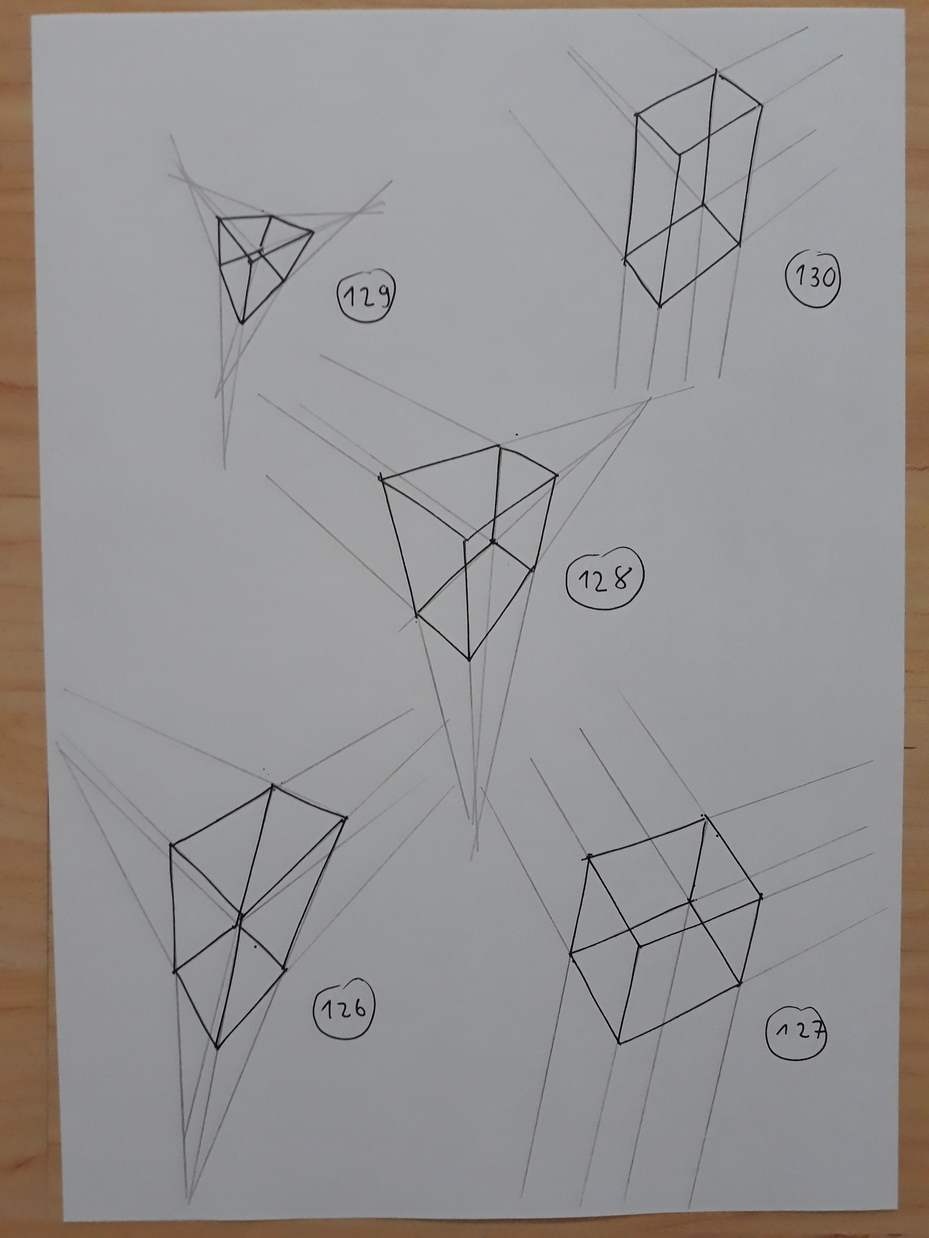 129
130
128
126
127